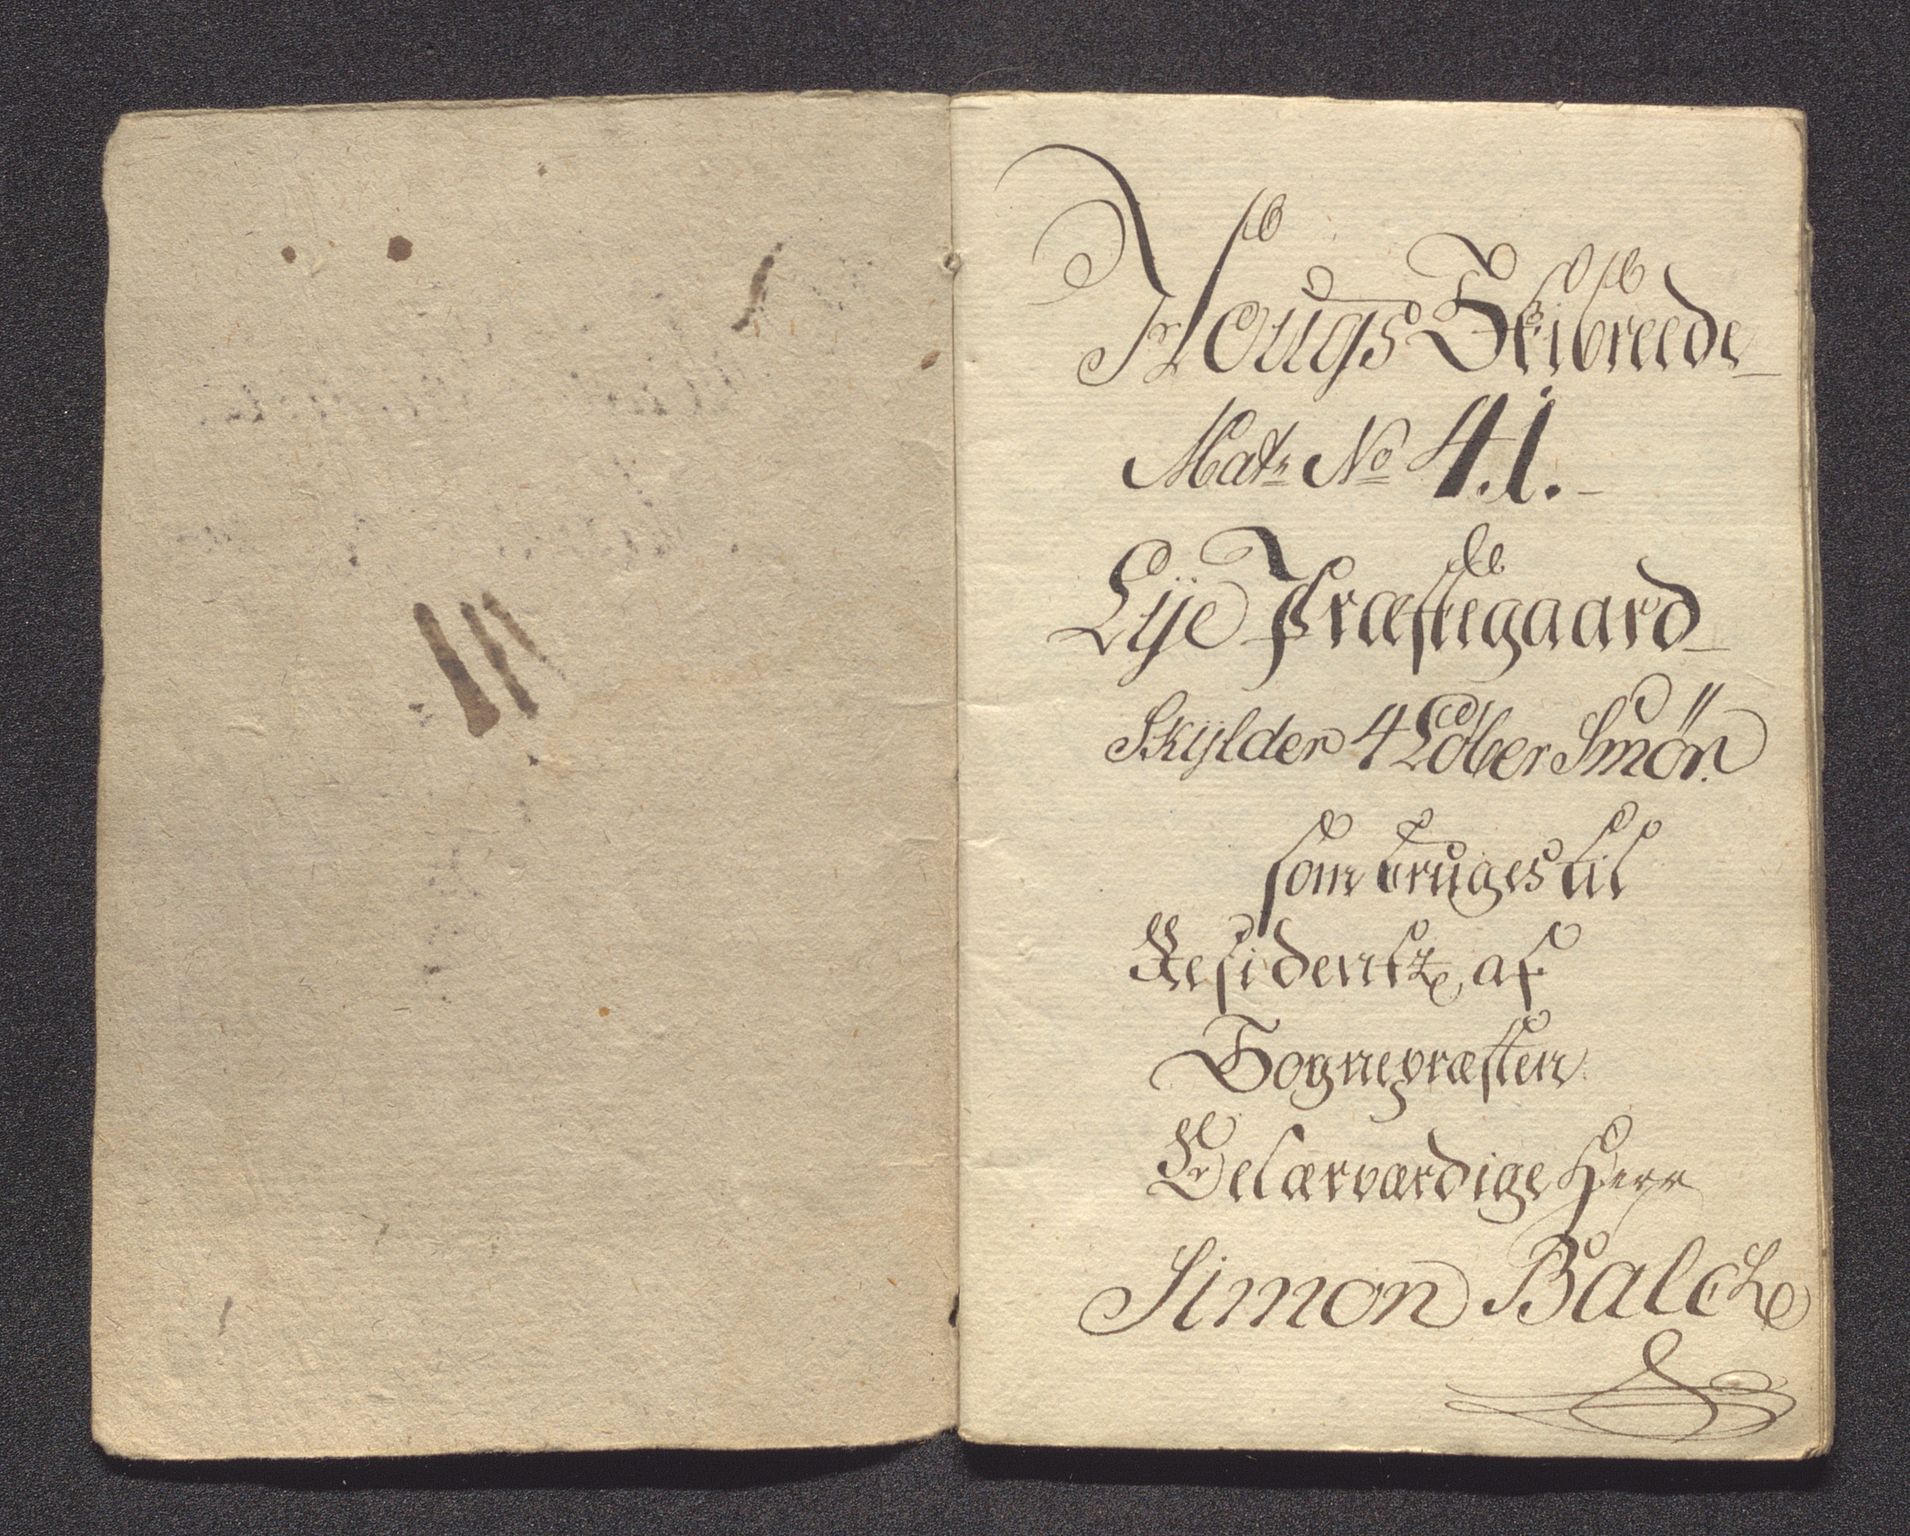 Hougs Skibreede
Matr No 41.
Lye Præstegaard
Skylder 4 Løber Smør
som bruges til
Residentz af
Sognepræsten
Velærværdige Herr
Simon Balck